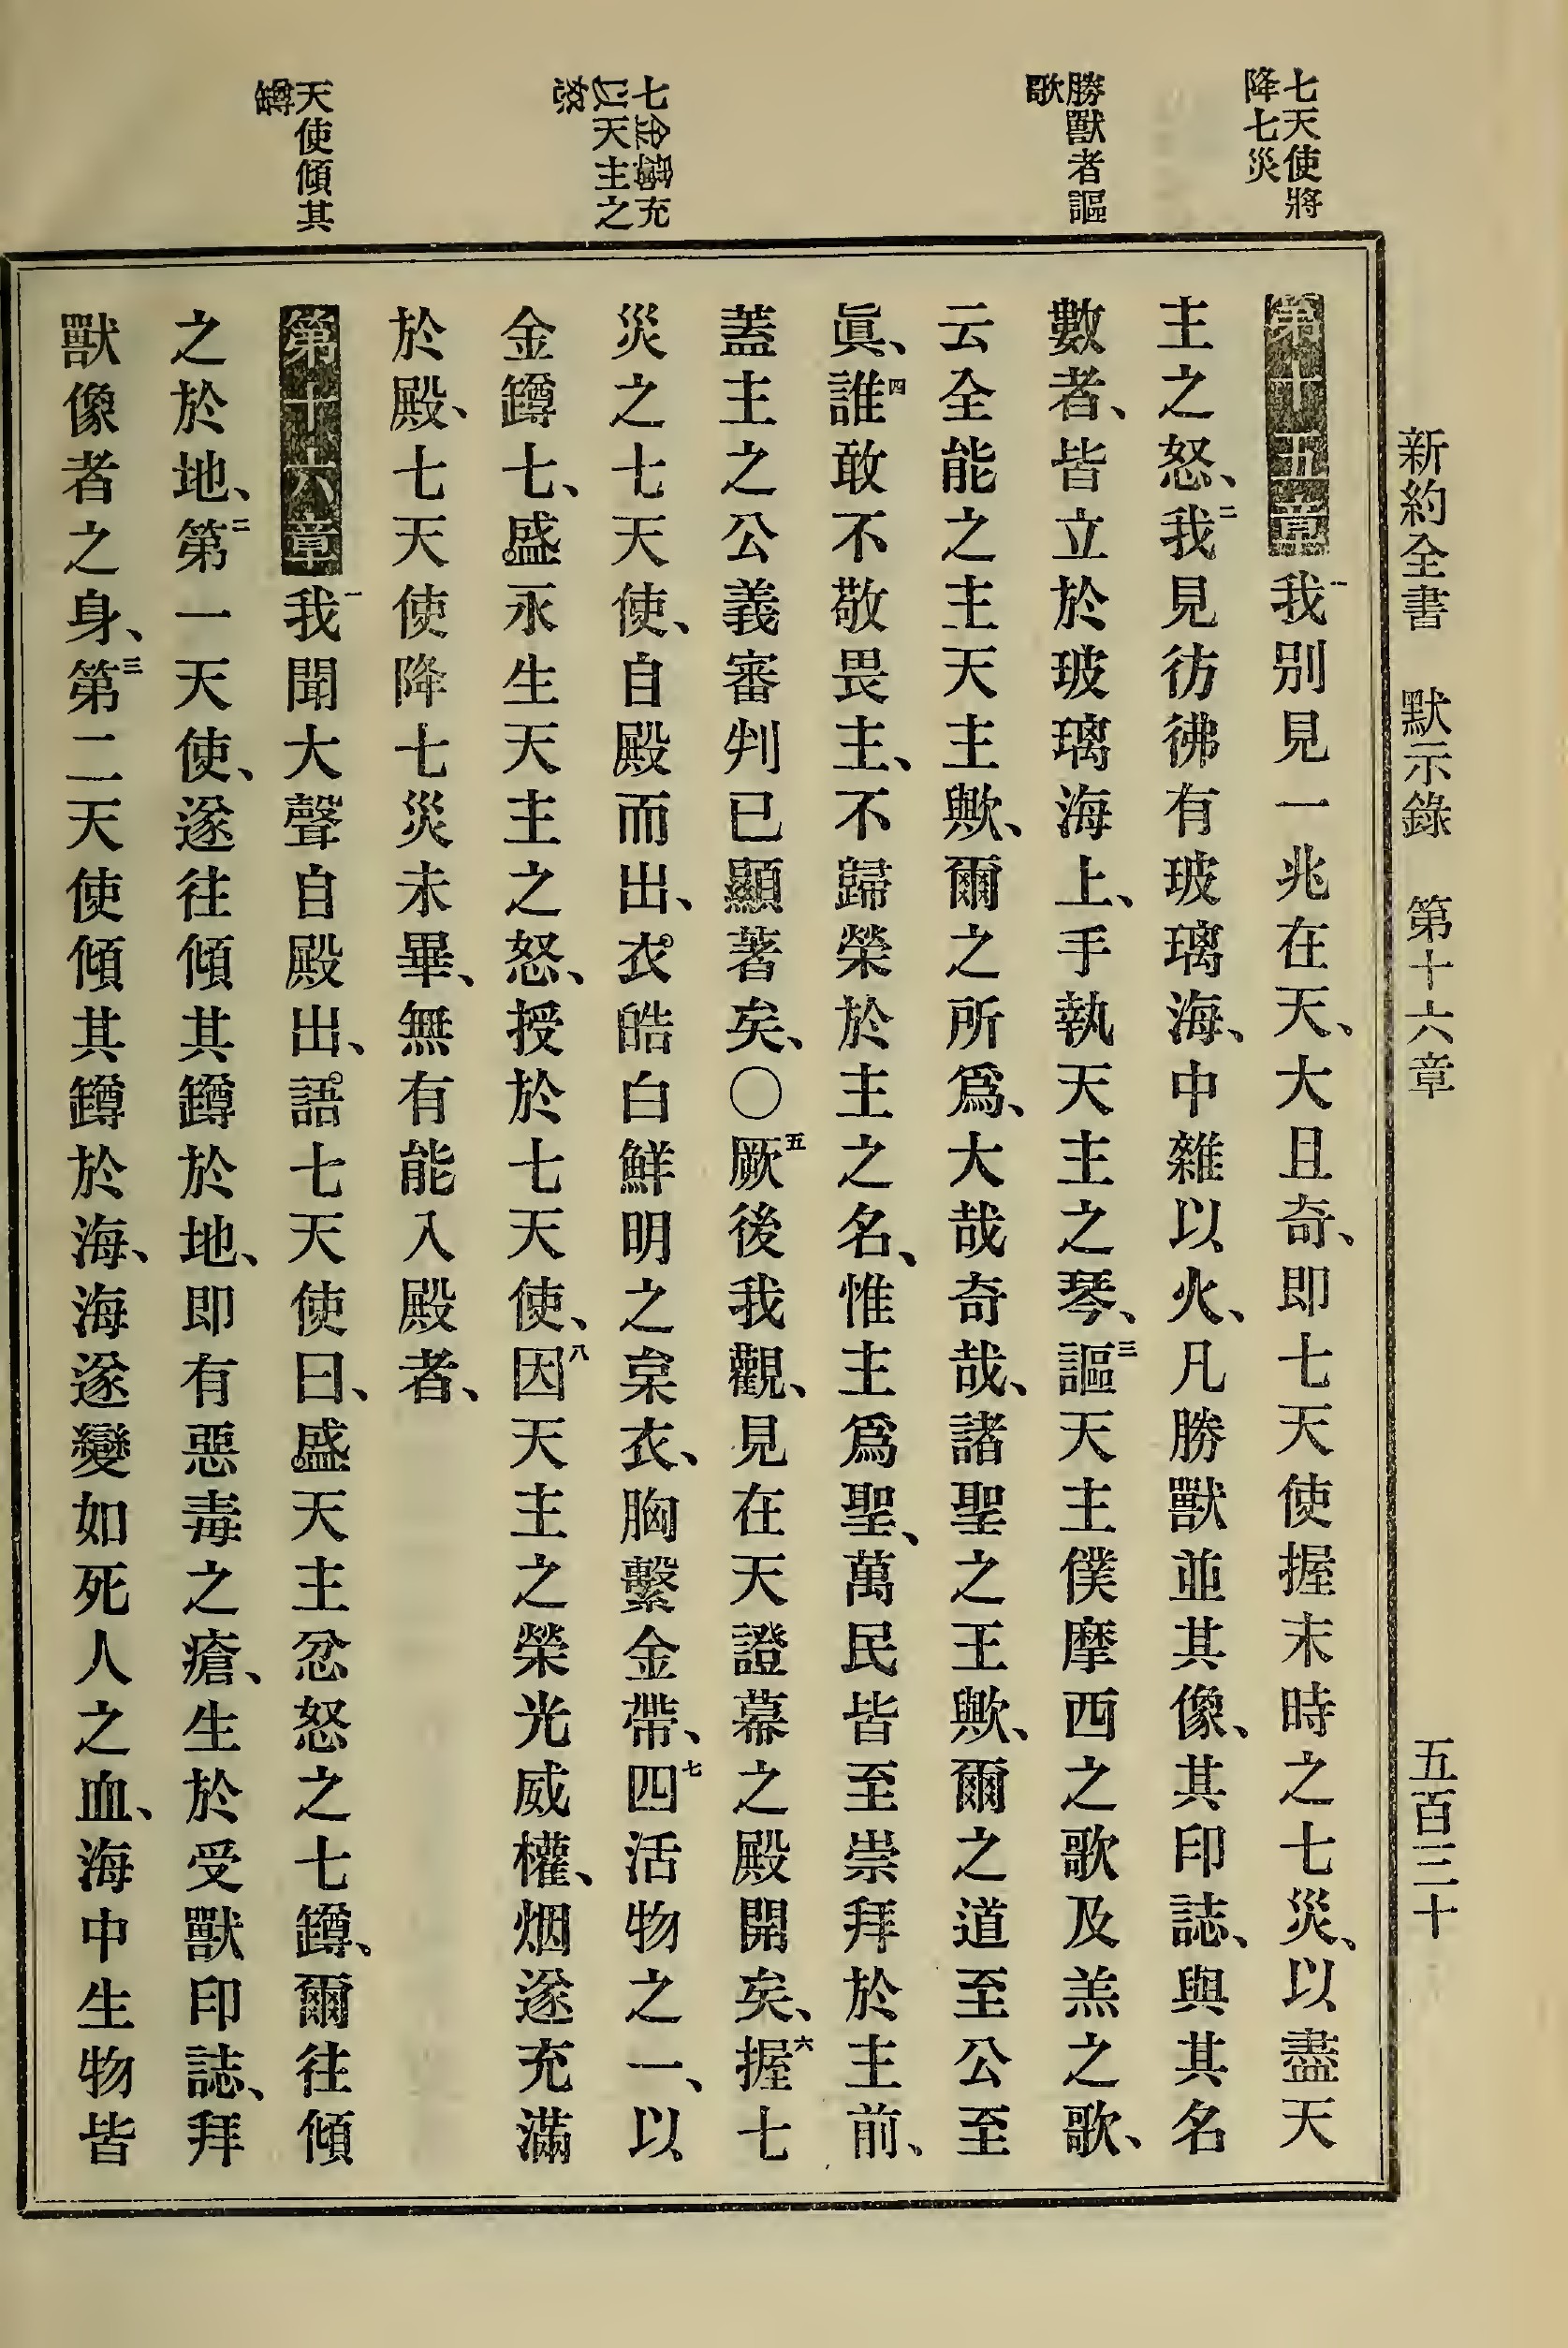 新約全書 默示錄 第十六章 五百三十
七天使將
降七災
勝獸者謳
歌
七金罇充
以天主之
怒
天使傾其
罇
第十五章 一我別見一兆在天、大且奇、即七天使握末時之七災、以盡天
主之怒、二我見彷彿有玻璃海、中雜以火、凡勝獸並其像、其印誌、與其名
數者、皆立於玻璃海上、手執天主之琴、三謳天主僕摩西之歌及羔之歌、
云全能之主天主歟、爾之所爲、大哉奇哉、諸聖之王歟、爾之道至公至
眞、四誰敢不敬畏主、不歸榮於主之名、惟主爲聖、萬民皆至崇拜於主前、
蓋主之公義審判已顯著矣、○五厥後我觀、見在天證幕之殿開矣、六握七
災之七天使、自殿而出、衣皓白鮮明之枲衣、胸繫金帶、七四活物之一、以
金罇七、盛永生天主之怒、授於七天使、八因天主之榮光威權、烟遂充滿
於殿、七天使降七災未畢、無有能入殿者、
第十六章 一我聞大聲自殿出、語七天使曰、盛天主忿怒之七罇、爾往傾
之於地、二第一天使、遂往傾其罇於地、即有惡毒之瘡、生於受獸印誌、拜
獸像者之身、三第二天使傾其罇於海、海遂變如死人之血、海中生物皆